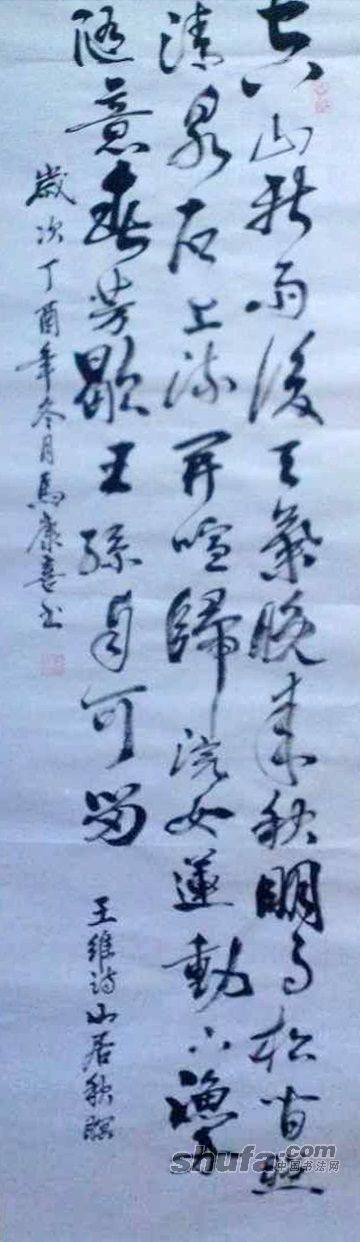 空山新雨後天氣晚来秋明月松間照
清泉石上流竹喧歸浣女蓮動下漁舟
隨意春芳歇王孫自可留
王維詩山居秋暝
歲次丁酉年冬月馬康喜书
shufa.com
中国书法网